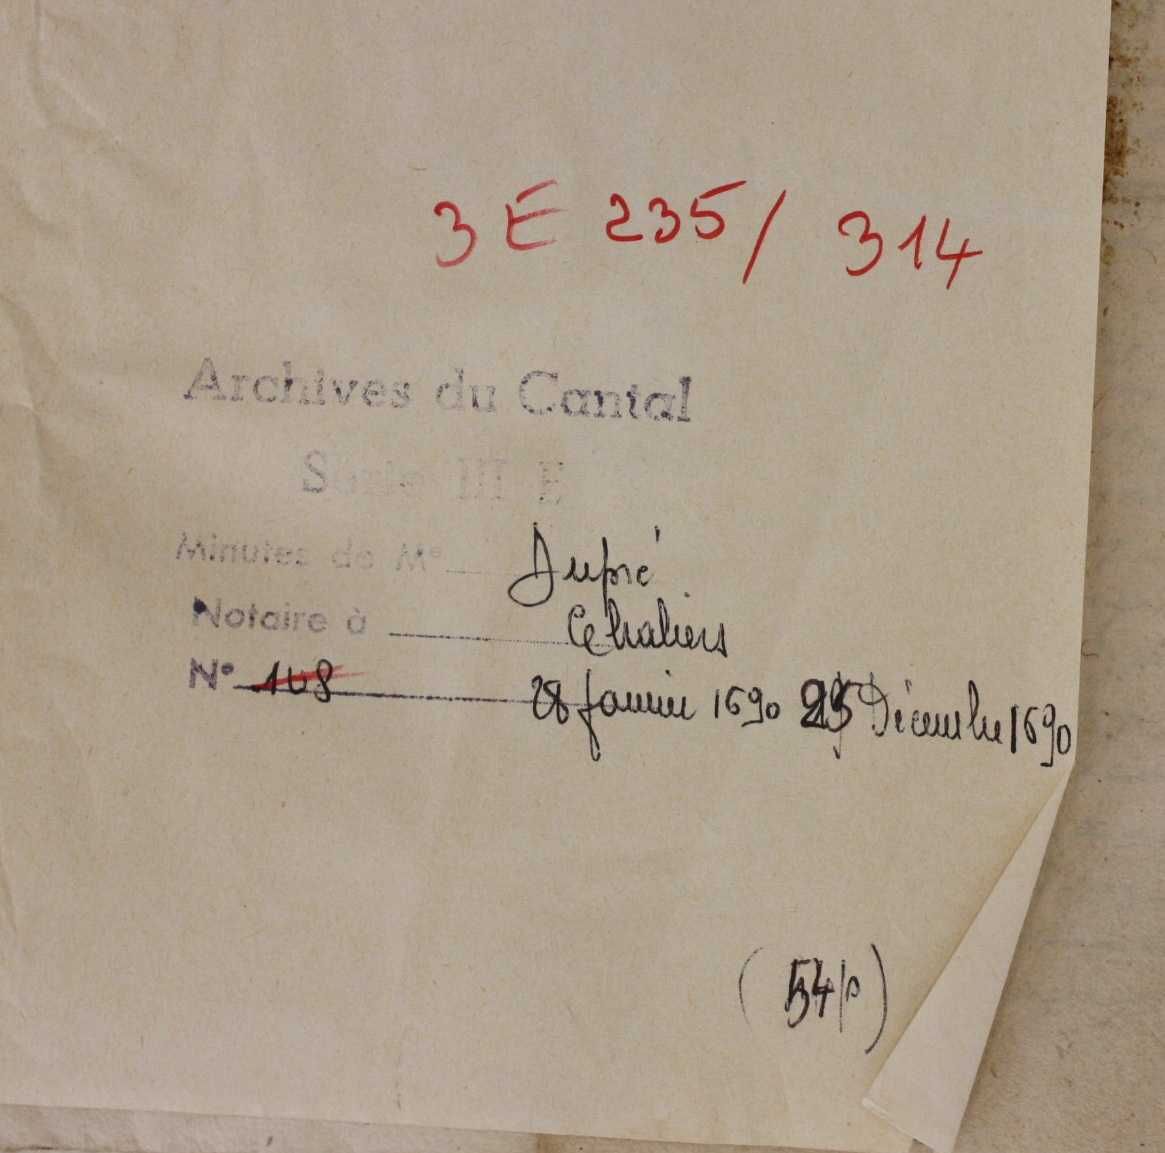 3 E 235 / 314
Archives du Cantal
Série III E
Minutes de Me Dupré
Notaire à Chaliers
N° 108 28 Janvier 1690 25 Décembre 1690
(54 p)